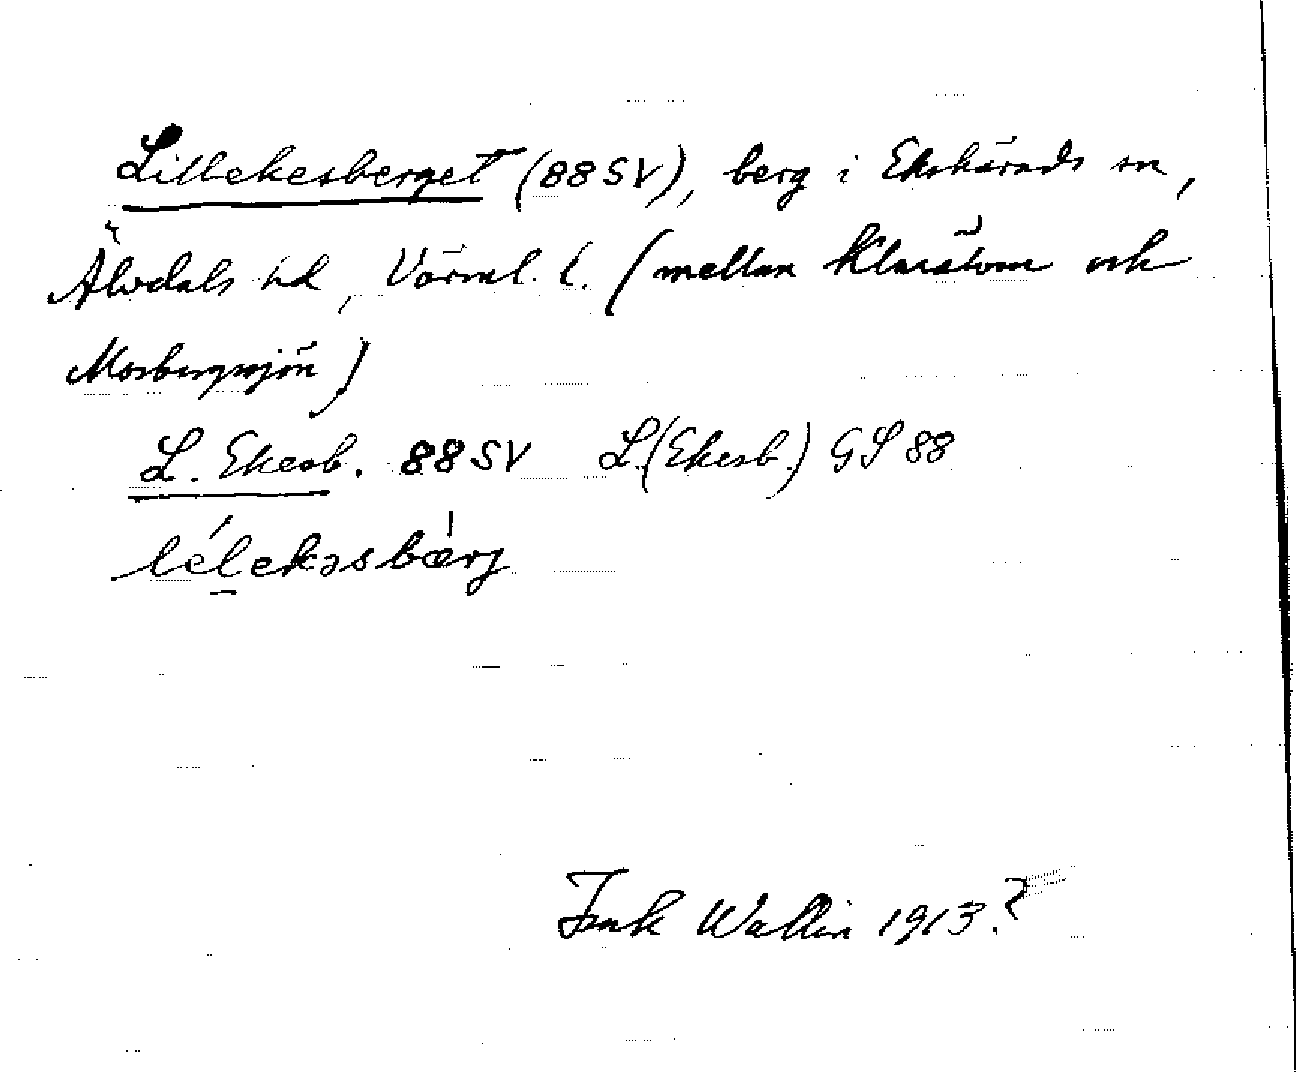 Lillekesberget (88SV), berg i Ekshärads sn,
Älvdals hd, Värml. l. (mellan Klarälven och
Mosbergssjön)
L. Ekesb. 88SV L.(Ekesb.) GS 88
lélekəsbærj
Jnk Wallin 1913.?